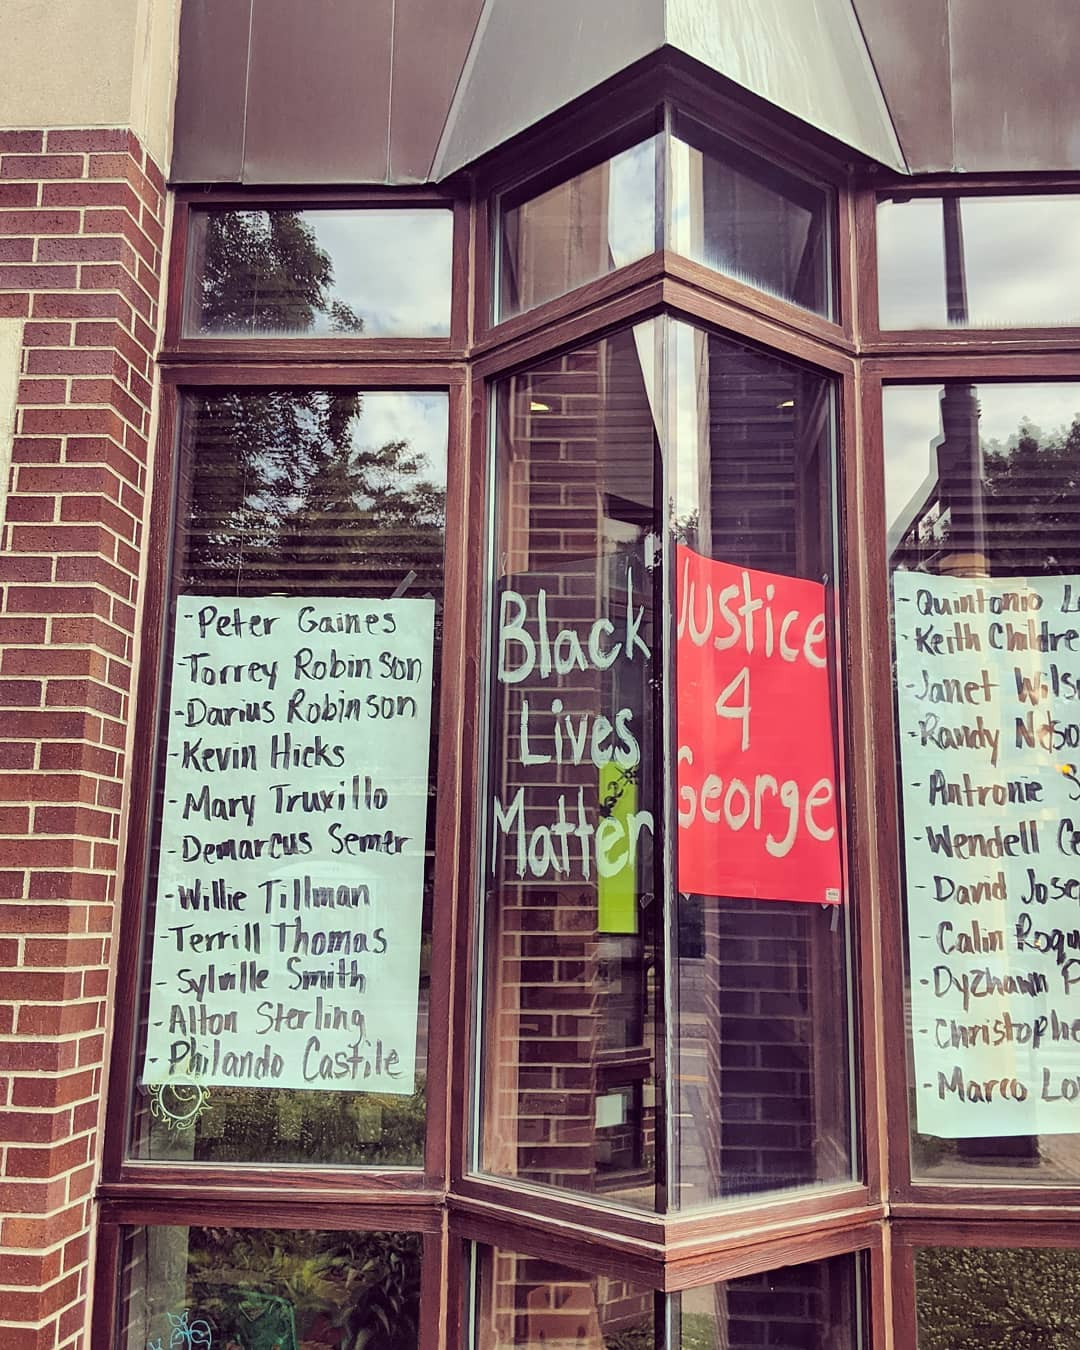 -Peter Gaines
-Torrey Robinson
-Darius Robinson
-Kevin Hicks
-Mary Truxillo
-Demarcus Semer
-Willie Tillman
-Terrill Thomas
-Sylville Smith
-Alton Sterling
-Philando Castile
Black
Lives
Matter
Justice
4
George
-Quintonio L
-Keith Childre
-Janet Wils
-Randy Nelso
-Antronie S
-Wendell Ce
-David Jose
-Calin Roqu
-Dyzhawn P
-Christophe
-Marco Lo